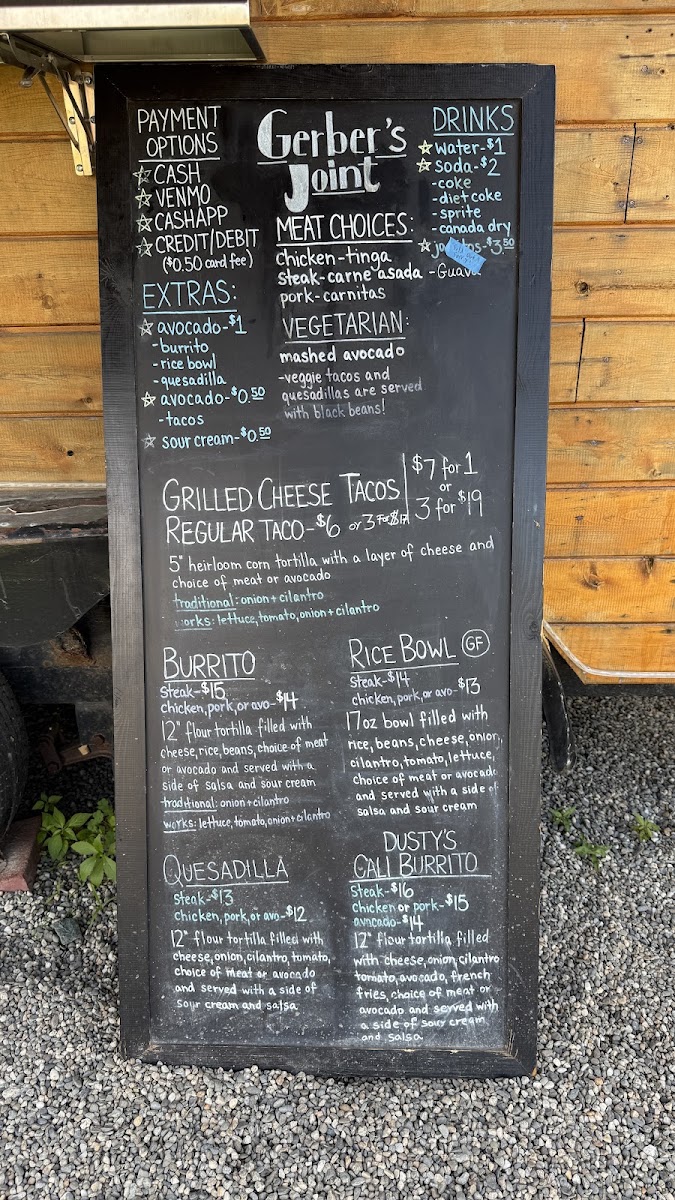 PAYMENT
OPTIONS
☆ CASH
☆ VENMO
☆ CASHAPP
☆ CREDIT/DEBIT
($0.50 card fee)
EXTRAS:
☆ avocado-$1
-burrito
-rice bowl
-quesadilla
☆ avocado-$0.50
-tacos
☆ sour cream-$0.50
Gerber's
Joint
MEAT CHOICES:
chicken-tinga
steak-carne asada
pork-carnitas
VEGETARIAN:
mashed avocado
-veggie tacos and
quesadillas are served
with black beans!
DRINKS
☆ water-$1
☆ soda-$2
-coke
-diet coke
-sprite
-canada dry
☆ -$3.50
-Guava
GRILLED CHEESE TACOS
$7 for 1
or
3 for $19
REGULAR TACO-$6 or 3 for $17
5" heirloom corn tortilla with a layer of cheese and
choice of meat or avocado
traditional: onion+cilantro
works: lettuce, tomato, onion+cilantro
BURRITO
steak-$15
chicken, pork, or avo-$14
12" flour tortilla filled with
cheese, rice, beans, choice of meat
or avocado and served with a
side of salsa and sour cream
traditional: onion+cilantro
works: lettuce, tomato, onion+cilantro
RICE BOWL GF
steak-$14
chicken, pork, or avo-$13
17oz bowl filled with
rice, beans, cheese, onion,
cilantro, tomato, lettuce,
choice of meat or avocado
and served with a side of
salsa and sour cream
QUESADILLA
steak-$13
chicken, pork, or avo-$12
12" flour tortilla filled with
cheese, onion, cilantro, tomato,
choice of meat or avocado
and served with a side of
sour cream and salsa
DUSTY'S
CALI BURRITO
steak-$16
chicken or pork-$15
avocado-$14
12" flour tortilla filled
with cheese, onion, cilantro
tomato, avocado, french
fries, choice of meat or
avocado and served with
a side of sour cream
and salsa